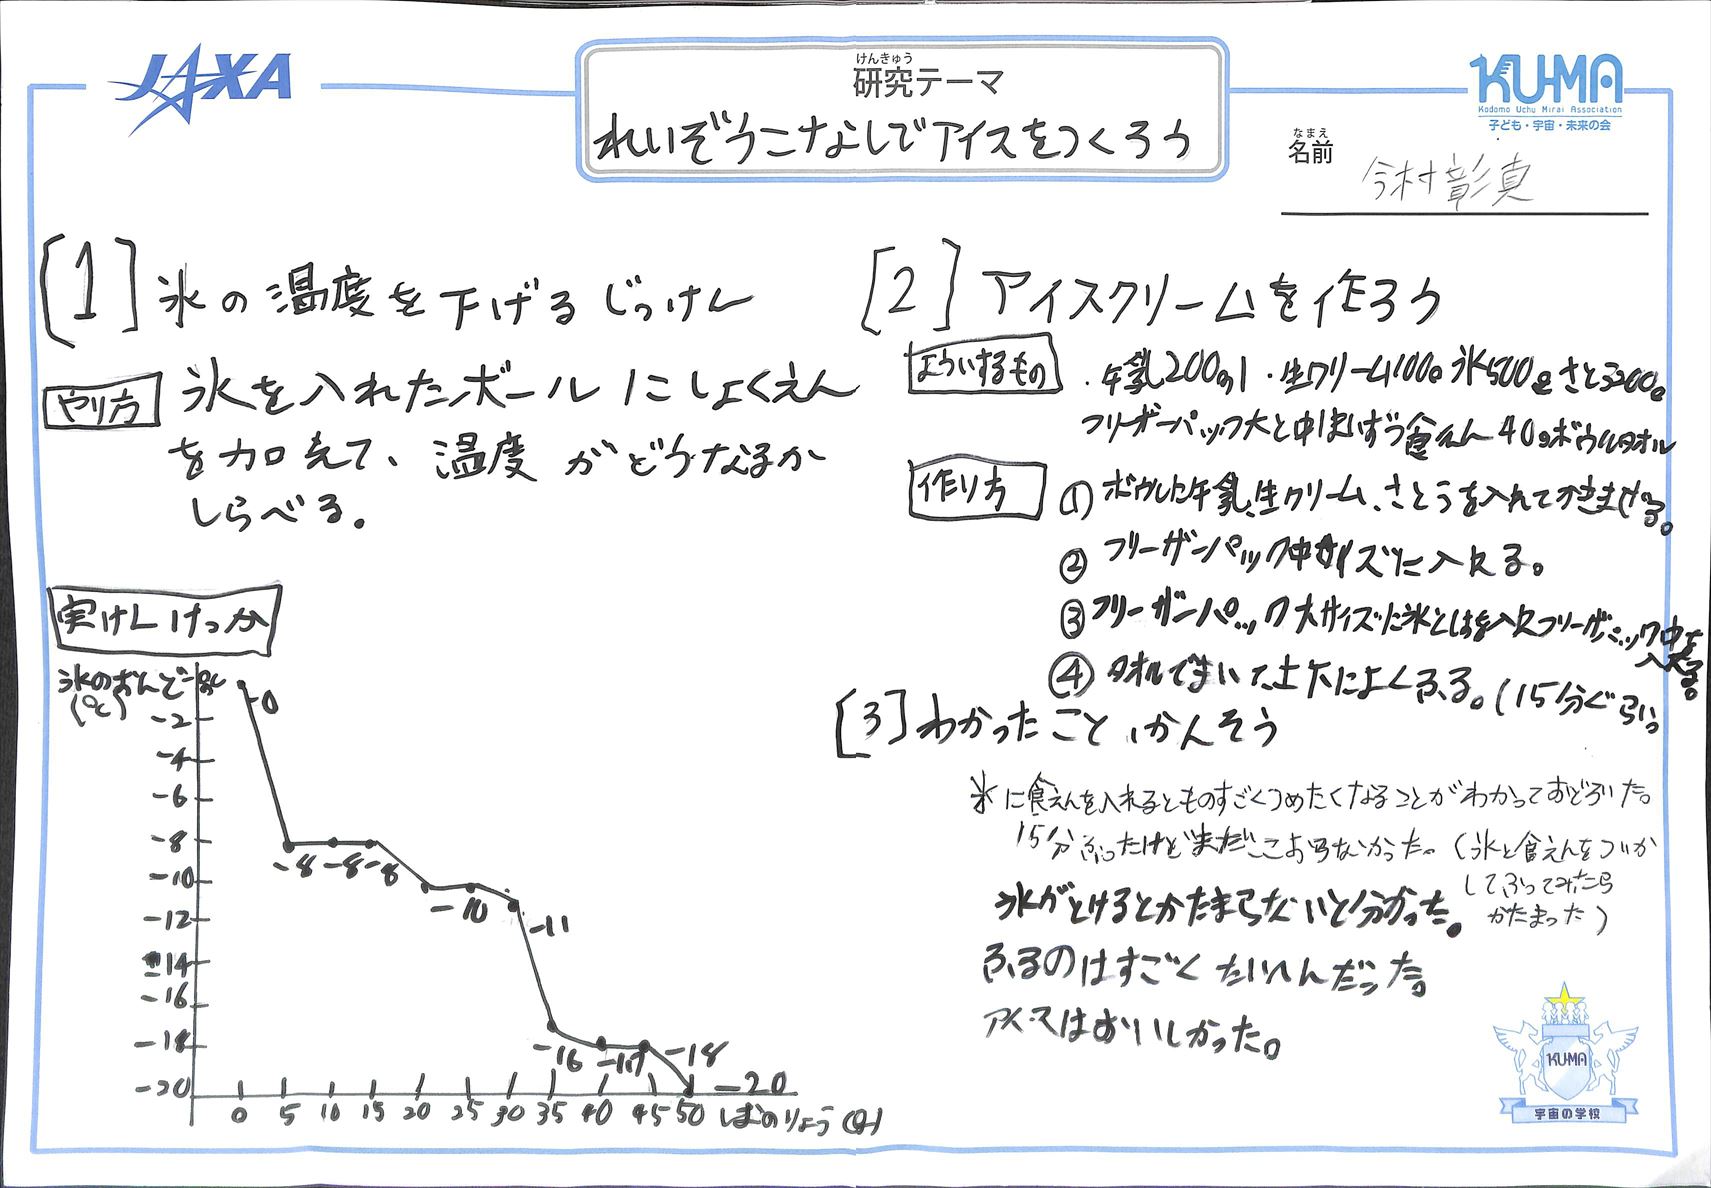 JAXA
けんきゅう
研究テーマ
れいぞうこなしでアイスをつくろう
KU-MA
Kodomo Uchu Mirai Association
子ども・宇宙・未来の会
なまえ
名前
今村彰真
[1] 氷の温度を下げるじっけん
やり方 氷を入れたボールにしょくえん
を加えて、温度がどうなるか
しらべる。
実けんけっか
氷のおんど
(℃)
0
-2
-4
-6
-8
-10
-12
-14
-16
-18
-20
-0
-8 -8 -8
-10
-11
-16 -17 -18
-20
0 5 10 15 20 25 30 35 40 45 50 しおのりょう(g)
[2] アイスクリームを作ろう
よういするもの ・牛乳200ml ・生クリーム100g 氷500g さとう200g
フリーザーパック大と中1まいずつ 食えん40g ボウル タオル
作り方 ① ボウルに牛乳、生クリーム、さとうを入れてかきまぜる。
② フリーザーパック中サイズに入れる。
③ フリーザーパック大サイズに氷としおを入れフリーザーパック中を
入れる。
④ タオルでまいて上下によくふる。(15分ぐらい)
[3] わかったこと、かんそう
氷に食えんを入れるとものすごくつめたくなることがわかっておどろいた。
15分ふったけどまだこおらなかった。(氷と食えんをついか
してふってみたら
かたまった)
氷がとけるとかたまらないと分かった。
ふるのはすごくたいへんだった。
アイスはおいしかった。
KUMA
宇宙の学校